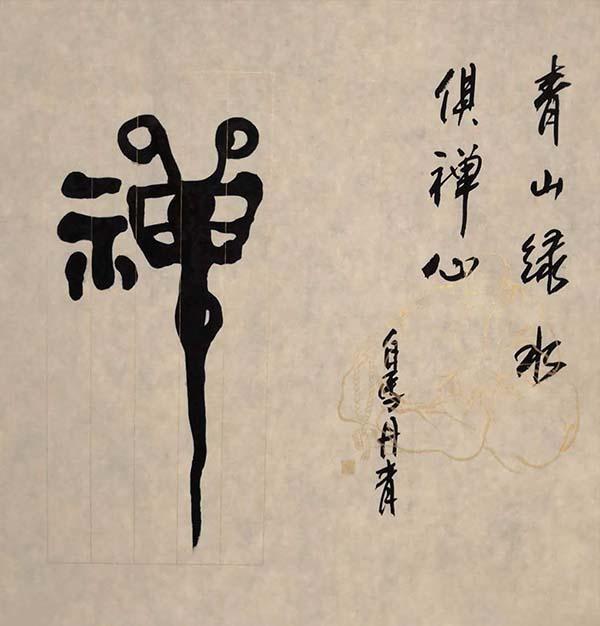 青山绿水
俱禅心
白馬丹青
禅